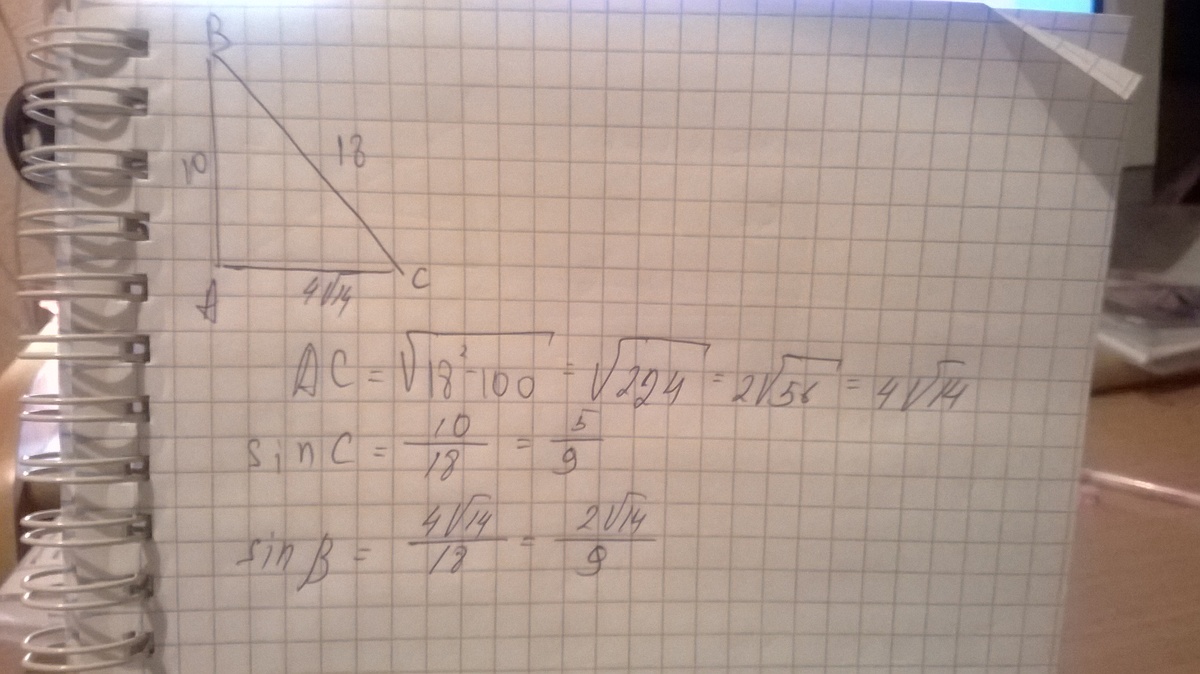 B
10
18
A
4√14
C
AC = √18²-100 = √224 = 2√56 = 4√14
sin C = 10/18 = 5/9
sin B = 4√14/18 = 2√14/9